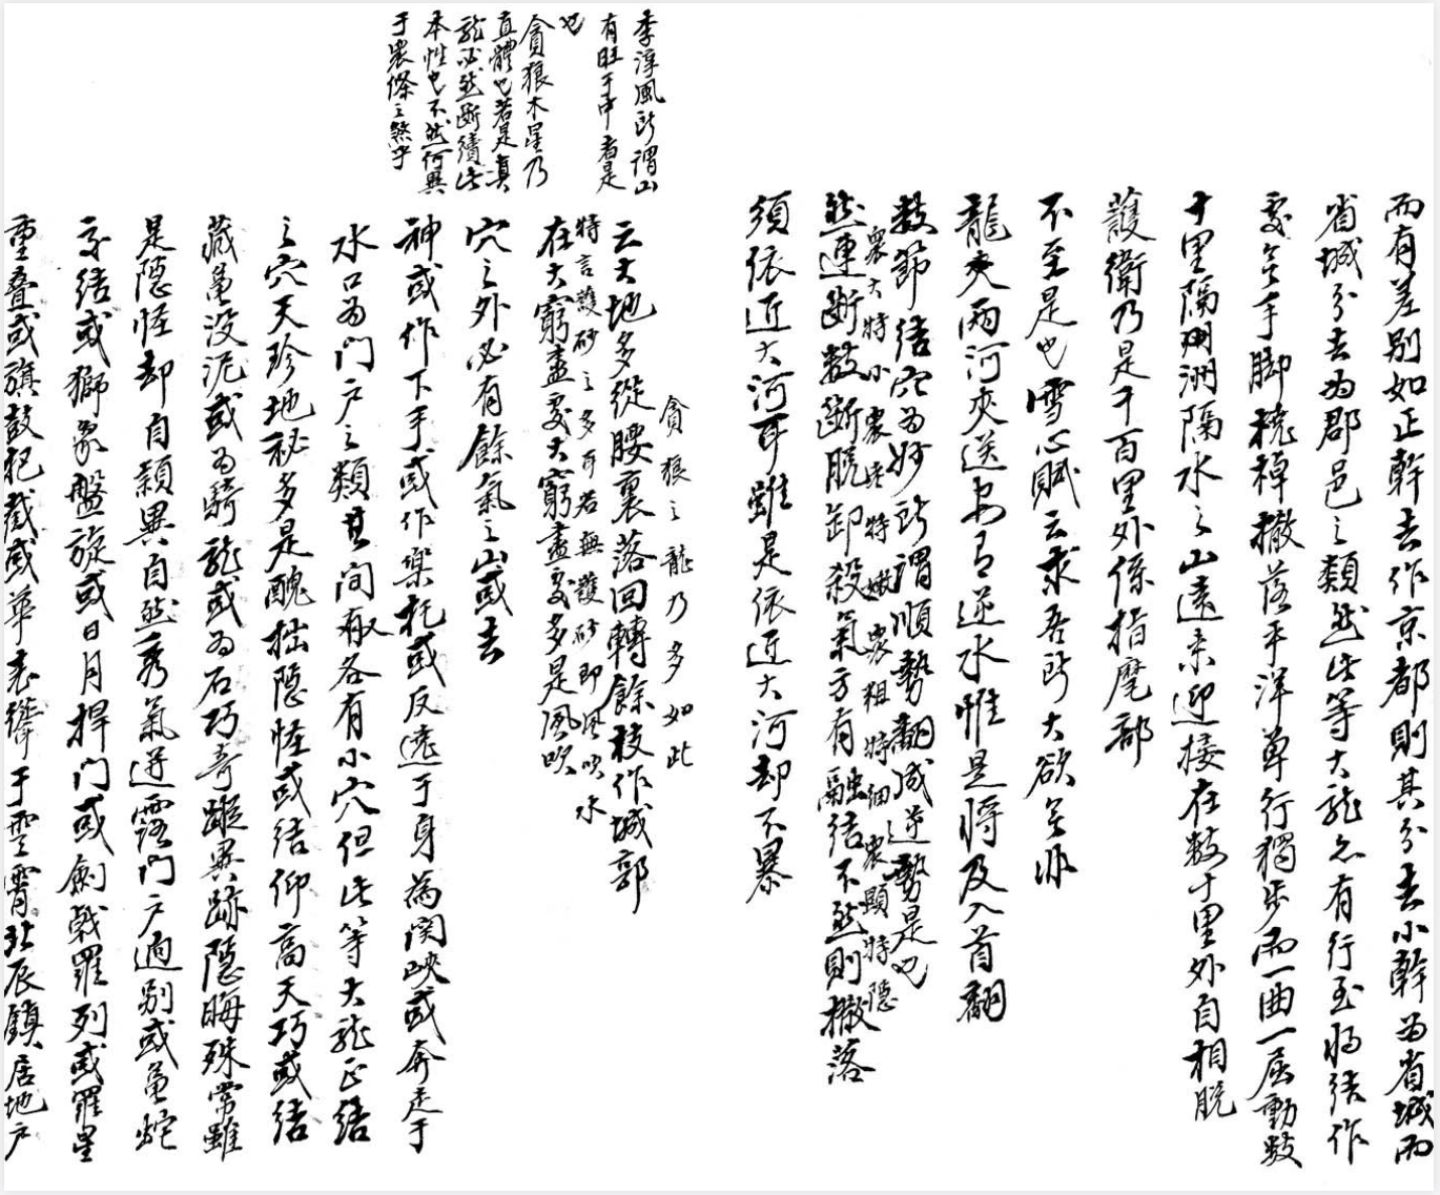 而有差別如正幹去作京都則其分去小幹為省城而
省城分去為郡邑之類然此等大龍亦有行至將結作
處全手脚橈棹撤落平洋單行獨步而一曲一屈動數
十里隔州隔水之山遠來迎接在數十里外自相脫
護衛乃是千百里外係指麾部
不至是也雪心賦云求吾所大欲無非
龍夾兩河夾送安有逆水惟是將及入首翻
數節結穴為妙所謂順勢翻成逆勢是也
衆大特小衆小特大衆粗特細衆顯特隱
然連斷數斷脫卸殺氣方有融結不然則撤落
須依近大河耳雖是依近大河却不暴
李淳風所謂山
有旺于中者是
也
貪狼木星乃
直體也若是真
龍必然斷續此
本性也不然何異
于衆條之煞乎
貪狼之龍乃多如此
云大地多從腰裏落回轉餘枝作城郭
特言護砂之多耳若無護砂即風吹水
在大窮盡處大窮盡處多是風吹
穴之外必有餘氣之山或去
神或作下手或作樂托或反遶于身為関峽或奔走于
水口為門戶之類其間 各有小穴但此等大龍正結
之穴天珍地秘多是醜拙隱怪或結仰高天巧或結
藏龜没泥或為騎龍或為石巧奇蹤異跡隱晦殊常雖
是隱怪却自頴異自然秀氣逆露門戶逈別或龜蛇
交結或獅象盤旋或日月捍門或劍戟羅列或羅星
重叠或旗鼓把截或華表聳于雲霄北辰鎮居地戶